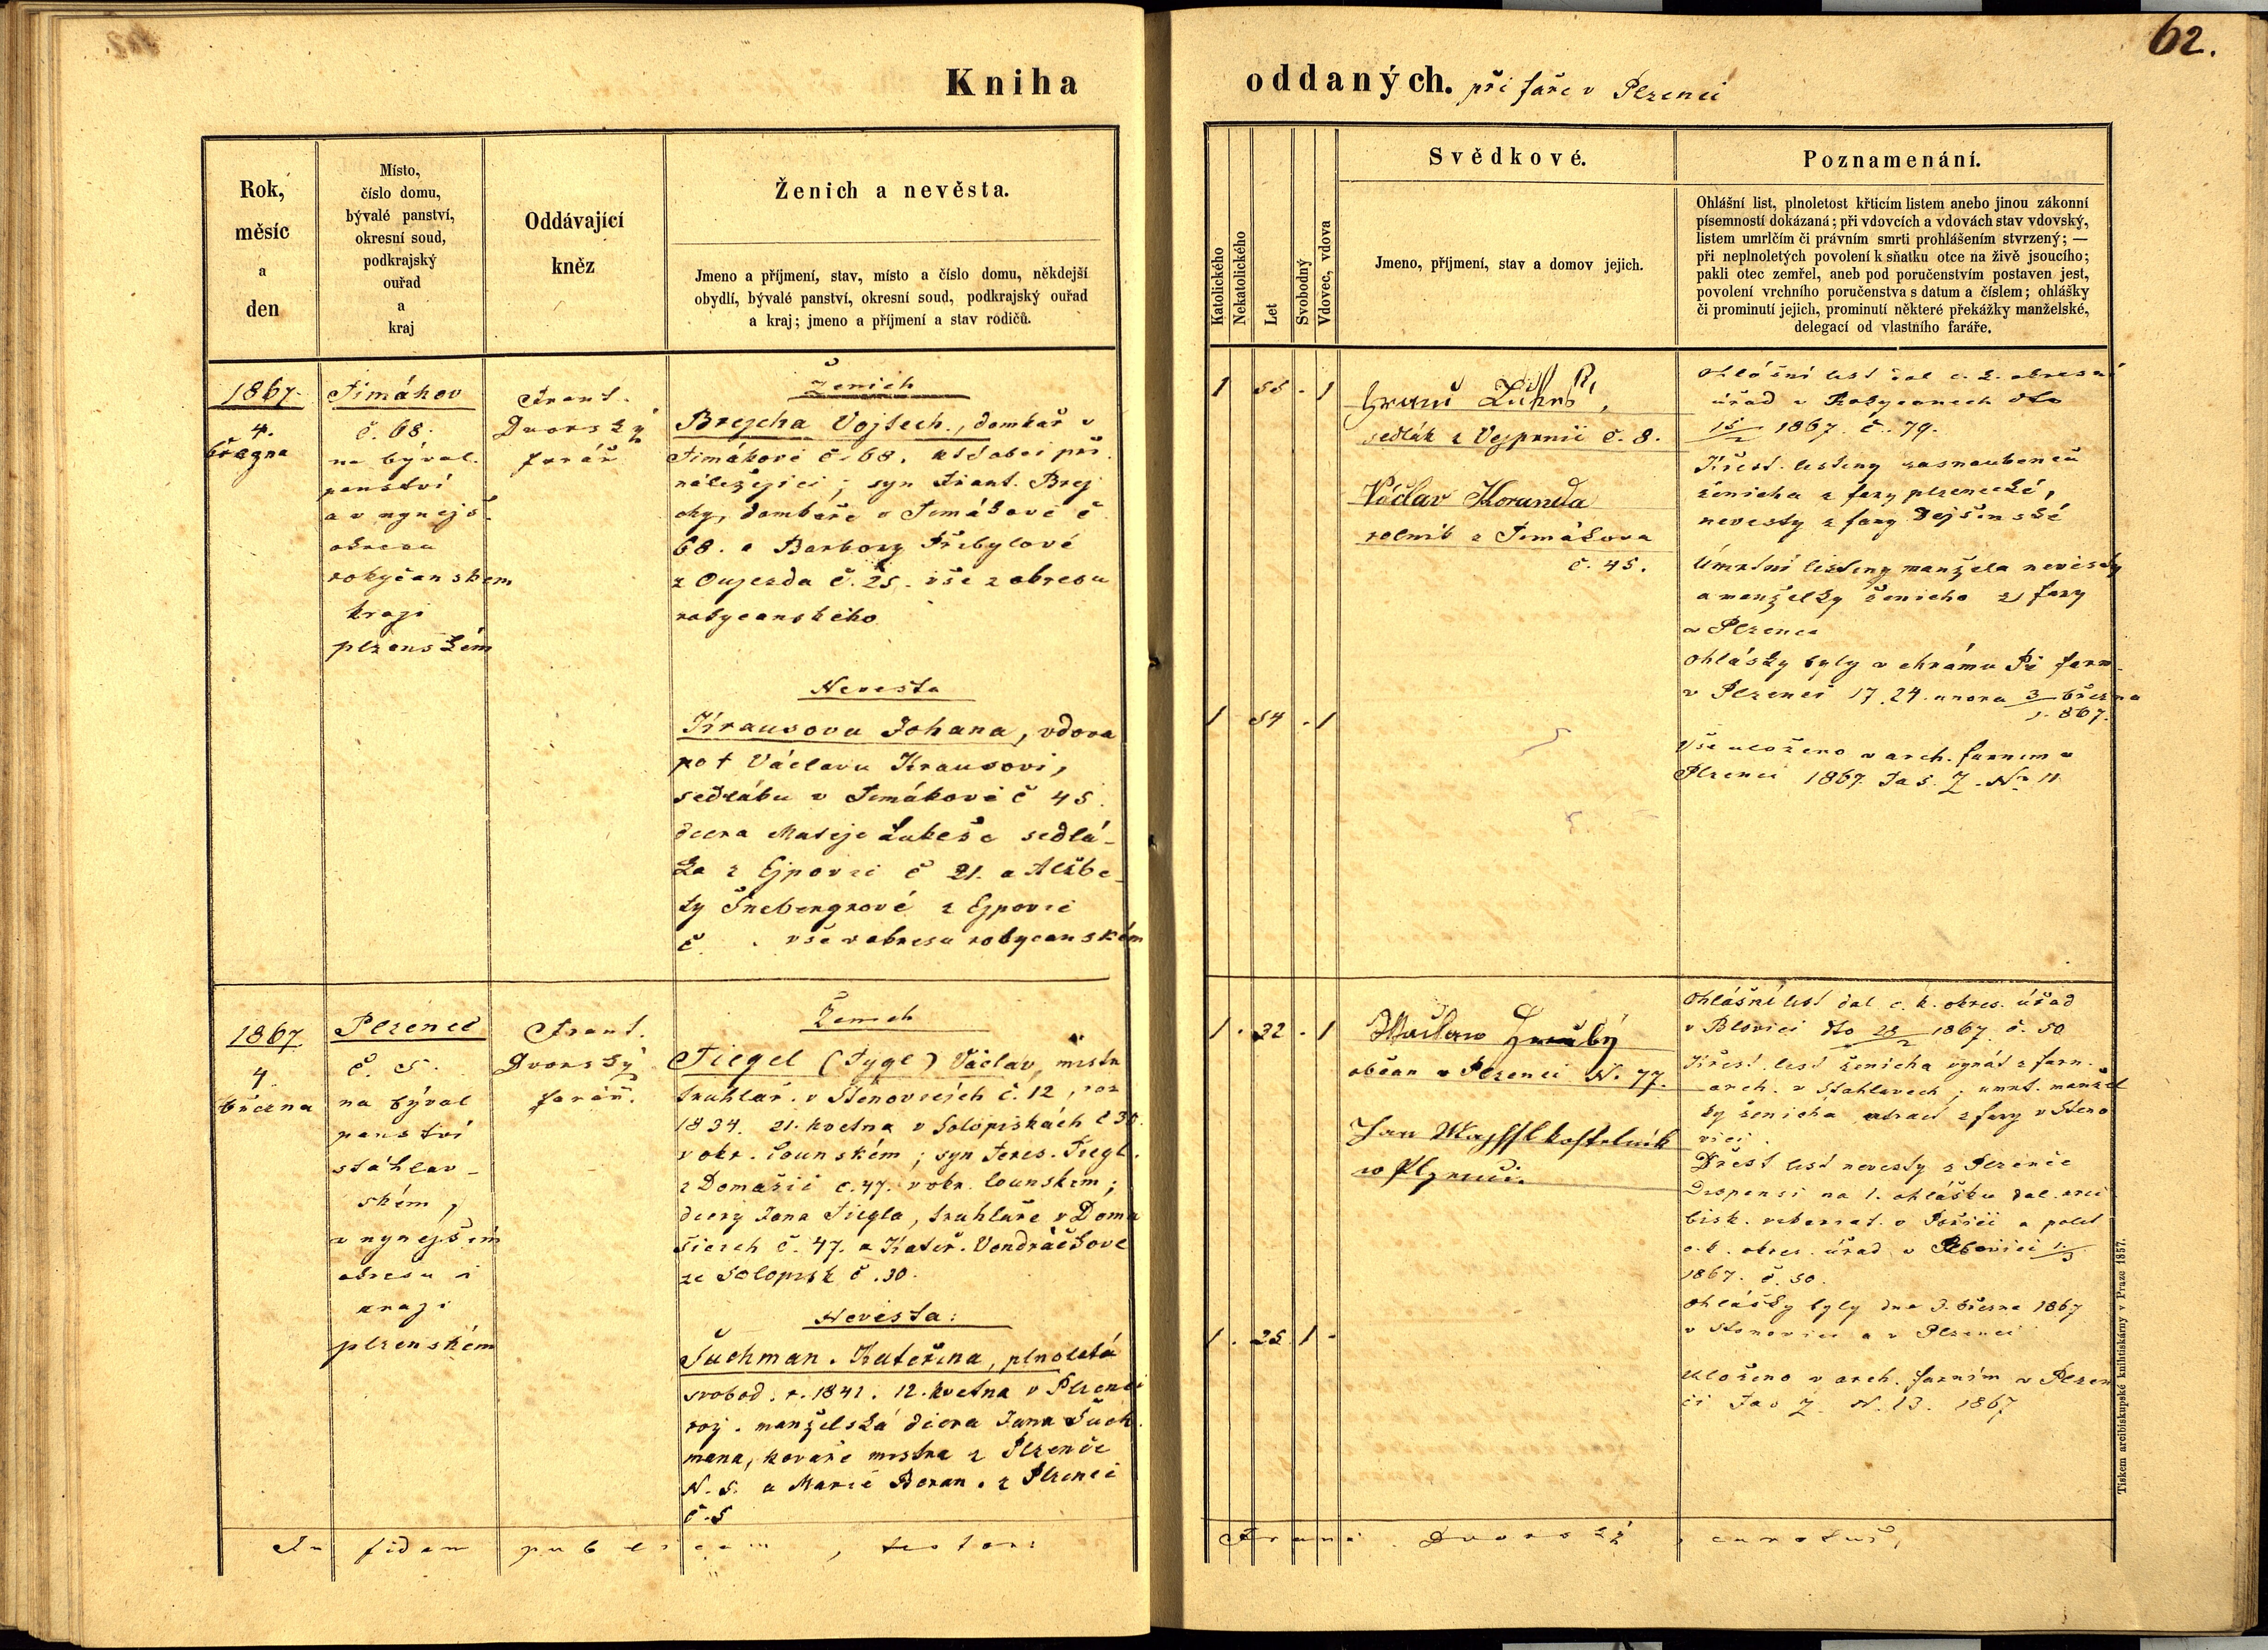 62.
Kniha oddaných. při faře v Plzenci
Rok,
měsíc
a
den
Místo,
číslo domu,
bývalé panství,
okresní soud,
podkrajský
ouřad
a
kraj
Oddávající
kněz
Ženich a nevěsta.
Jmeno a příjmení, stav, místo a číslo domu, někdejší
obydlí, bývalé panství, okresní soud, podkrajský ouřad
a kraj; jmeno a příjmení a stav rodičů.
Katolického
Nekatolického
Let
Svobodný
Vdovec, vdova
Svědkové.
Jmeno, příjmení, stav a domov jejich.
Poznamenání.
Ohlášní list, plnoletost křticím listem anebo jinou zákonní
písemností dokázaná; při vdovcích a vdovách stav vdovský,
listem umrlčím či právním smrti prohlášením stvrzený; —
při neplnoletých povolení k sňatku otce na živě jsoucího;
pakli otec zemřel, aneb pod poručenstvím postaven jest,
povolení vrchního poručenstva s datum a číslem; ohlášky
či prominutí jejich, prominutí některé překážky manželské,
delegací od vlastního faráře.
1867.
4.
března
Timákov
č. 68.
na býval.
panství
a v nynějš.
okresu
rokyčanském
kraji
plzenském
Frant.
Dvorský
farář
Ženich
Brejcha Vojtech., domkař v
Timákově č. 68. k obci při
náležející; syn Frant. Brej
chy, domkaře v Timákově č
68. a Barbory Přibylové
z Oujezda č. 25. vše z okresu
rokycanského
Nevesta
Krausova Johana, vdova
po † Václavu Krausovi,
sedláku v Timákově č 45.
dcera Matěje Lukeše sedlá-
ka z Ejpovic č 21. a Alžbě-
ty Šnebergrové z Ejpovic
č . vše v okresu rokycanském
1 55 - 1
1 54 - 1
Lukeš,
sedlák z Vejprnic č. 8.
Václav Koranda
rolník z Timákova
č. 45.
Ohlášní list dal c. k. okresní
úřad v Rokycanech dto
15/2 1867. č. 79.
Křest. listiny zasnoubenců
ženicha z fary plzenecké,
nevesty z fary Dejšinské
Úmrtní listiny manžela nevěsty
a manželky ženicha z fary
v Plzenci
Ohlášky byly v chrámu Pí farn.
v Plzenci 17. 24. února 3/ března
1867.
Vše uloženo v arch. farním v
Plzenci 1867. Fas. Z. No 11.
1867
4
března
Plzenec
č. 5.
na býval
panství
stáhlav-
ském,
v nynějším
okresu i
kraji
plzenském
Frant.
Dvorský
farář.
Ženich
Tiegel (Tygl) Václav, mistr
truhlář. v Štěnovicích č. 12, roz
1834. 21. května v Solopiskách č 30.
v okr. Lounském; syn Teres. Tiegl.
z Domašic č. 47. v okr. lounském;
dcery Jana Tiegla, truhláře v Doma
šicích č. 47. a Kateř. Vondráčkove
ze Solopisk č. 30.
Nevěsta:
Šuchman. Kateřina, plnoletá
svobod. r. 1841. 12. května v Plzenci
roz. manželská dcera Jana Šuch.
mana, kováře mistra z Plzence
N. 5. a Marie Beran. z Plzenci
č. 5
1 . 32 - 1
1 . 25 1 -
Waclaw Hrubý
občan v Plzenci N. 77.
Jan kostelník
w Plzenci.
Ohlášní list dal c. k. okres. úřad
v Blovici dto 28/2 1867. č. 50
Křest. list ženicha vynát z farn.
arch. v Stahlavech; umrt. manžel
ky ženicha z fary v Stěno
vici.
Křest list nevesty z Plzence
Dispensi na 1. ohlášku dal arci
bisk. vikariat. v Pořičí a polit
c. k. okres. úřad v Blovici 1/3
1867. č. 50.
Ohlášky byly dne 3. března 1867
v Stenovici a v Plzenci
Uloženo v arch. farním v Plzen
ci Fas Z. N. 13. 1867
In fidem publicam, testor: Franc. Dvorský, curatus,
Tiskem arcibiskupské knihtiskárny v Praze 1857.